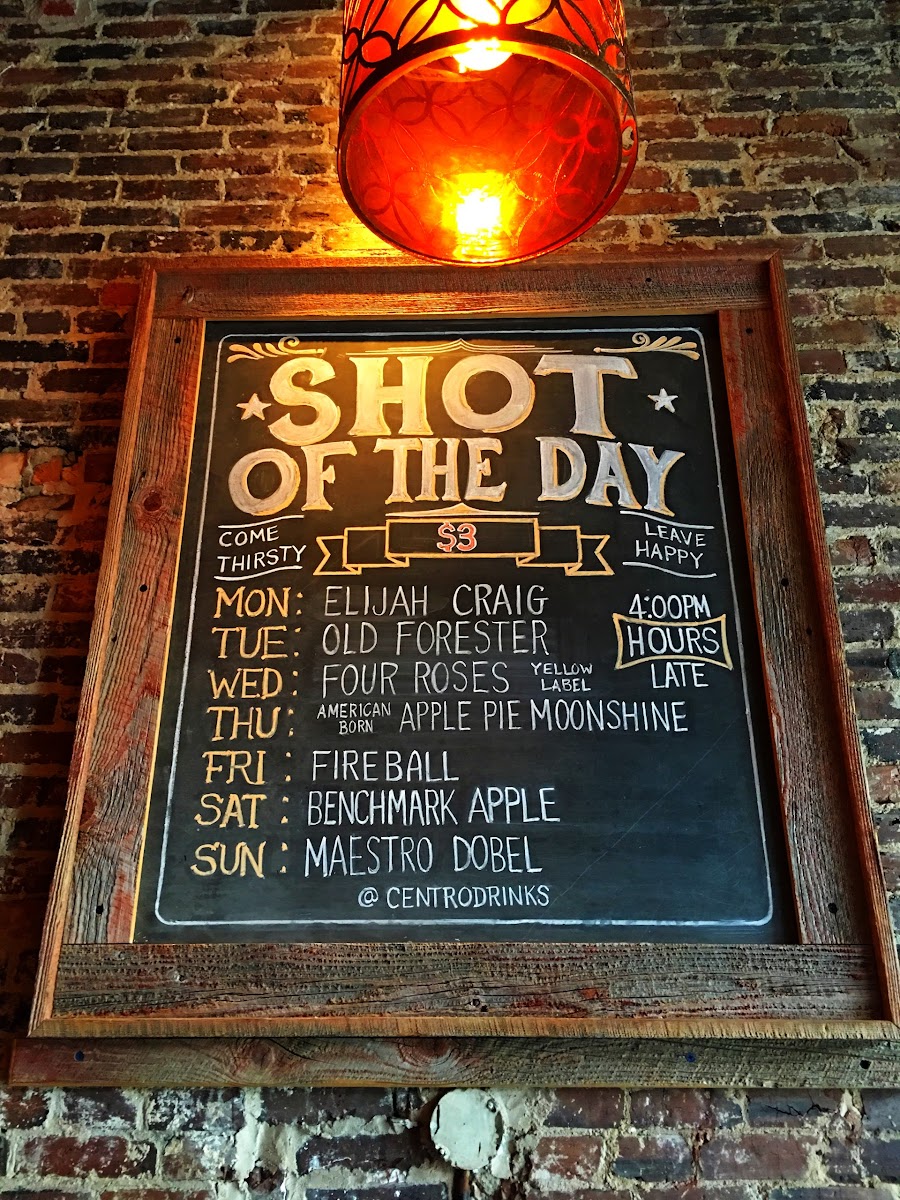 SHOT
OF THE DAY
COME
THIRSTY
$3
LEAVE
HAPPY
MON: ELIJAH CRAIG
TUE: OLD FORESTER
WED: FOUR ROSES YELLOW LABEL
THU: AMERICAN BORN APPLE PIE MOONSHINE
FRI: FIREBALL
SAT: BENCHMARK APPLE
SUN: MAESTRO DOBEL
4:00PM
HOURS
LATE
@ CENTRODRINKS